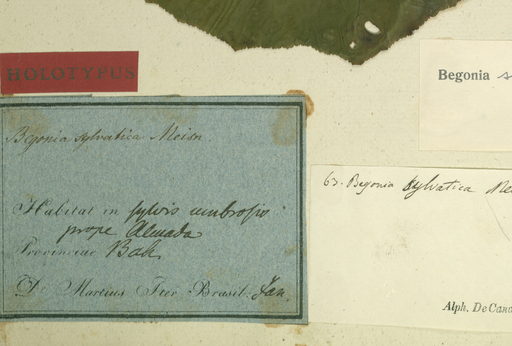 HOLOTYPUS
Begonia
Begonia sylvatica Meisn.
Habitat in sylvis umbrosis
prope Almada
Provinciae Bah.
De Martius Iter Brasil. Jan.
63. Begonia sylvatica
Alph. De Cand